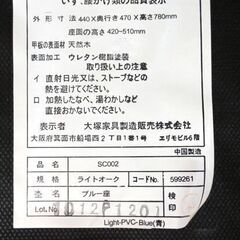 いす、腰かけ類の品質表示
外形寸法 440×奥行き470×高さ780mm
座面の高さ 420~510mm
甲板の表面材 天然木
表面加工 ウレタン樹脂塗装
取り扱い上の注意
イ 直射日光又は、ストーブなどの
熱を避けてください。
ロ 加熱したなべ、湯わかしなど
直接置かないでください。
表示者 大塚家具製造販売株式会社
大阪府箕面市船場西2丁目1番1号 エリモビル6階
中国製造
品名 SC002
色 ライトオーク コードNo. 599261
ブルー座 検印
Lot.No. 1012P1201
Light-PVC-Blue(青)